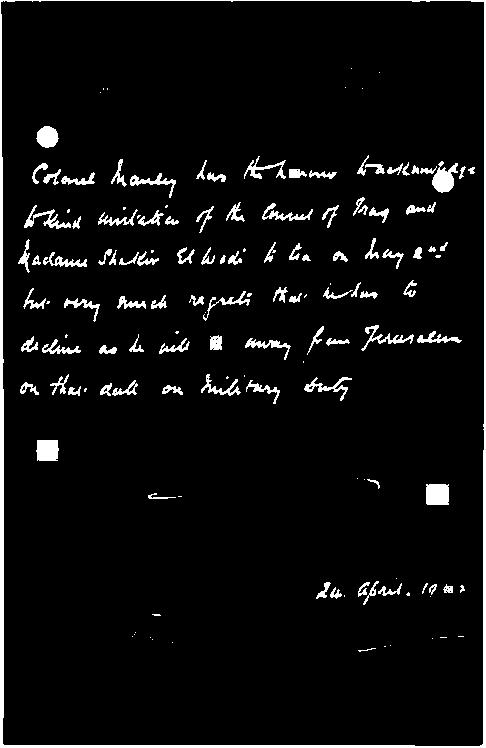 Colonel Manley has the honour to acknowledge
to kind invitation of the Consul of Iraq and
Madame Shakir El Wadi to tea on May 2nd
but very much regrets that he has to
decline as he will away from Jerusalem
on that date on Military Duty
24. April. 19